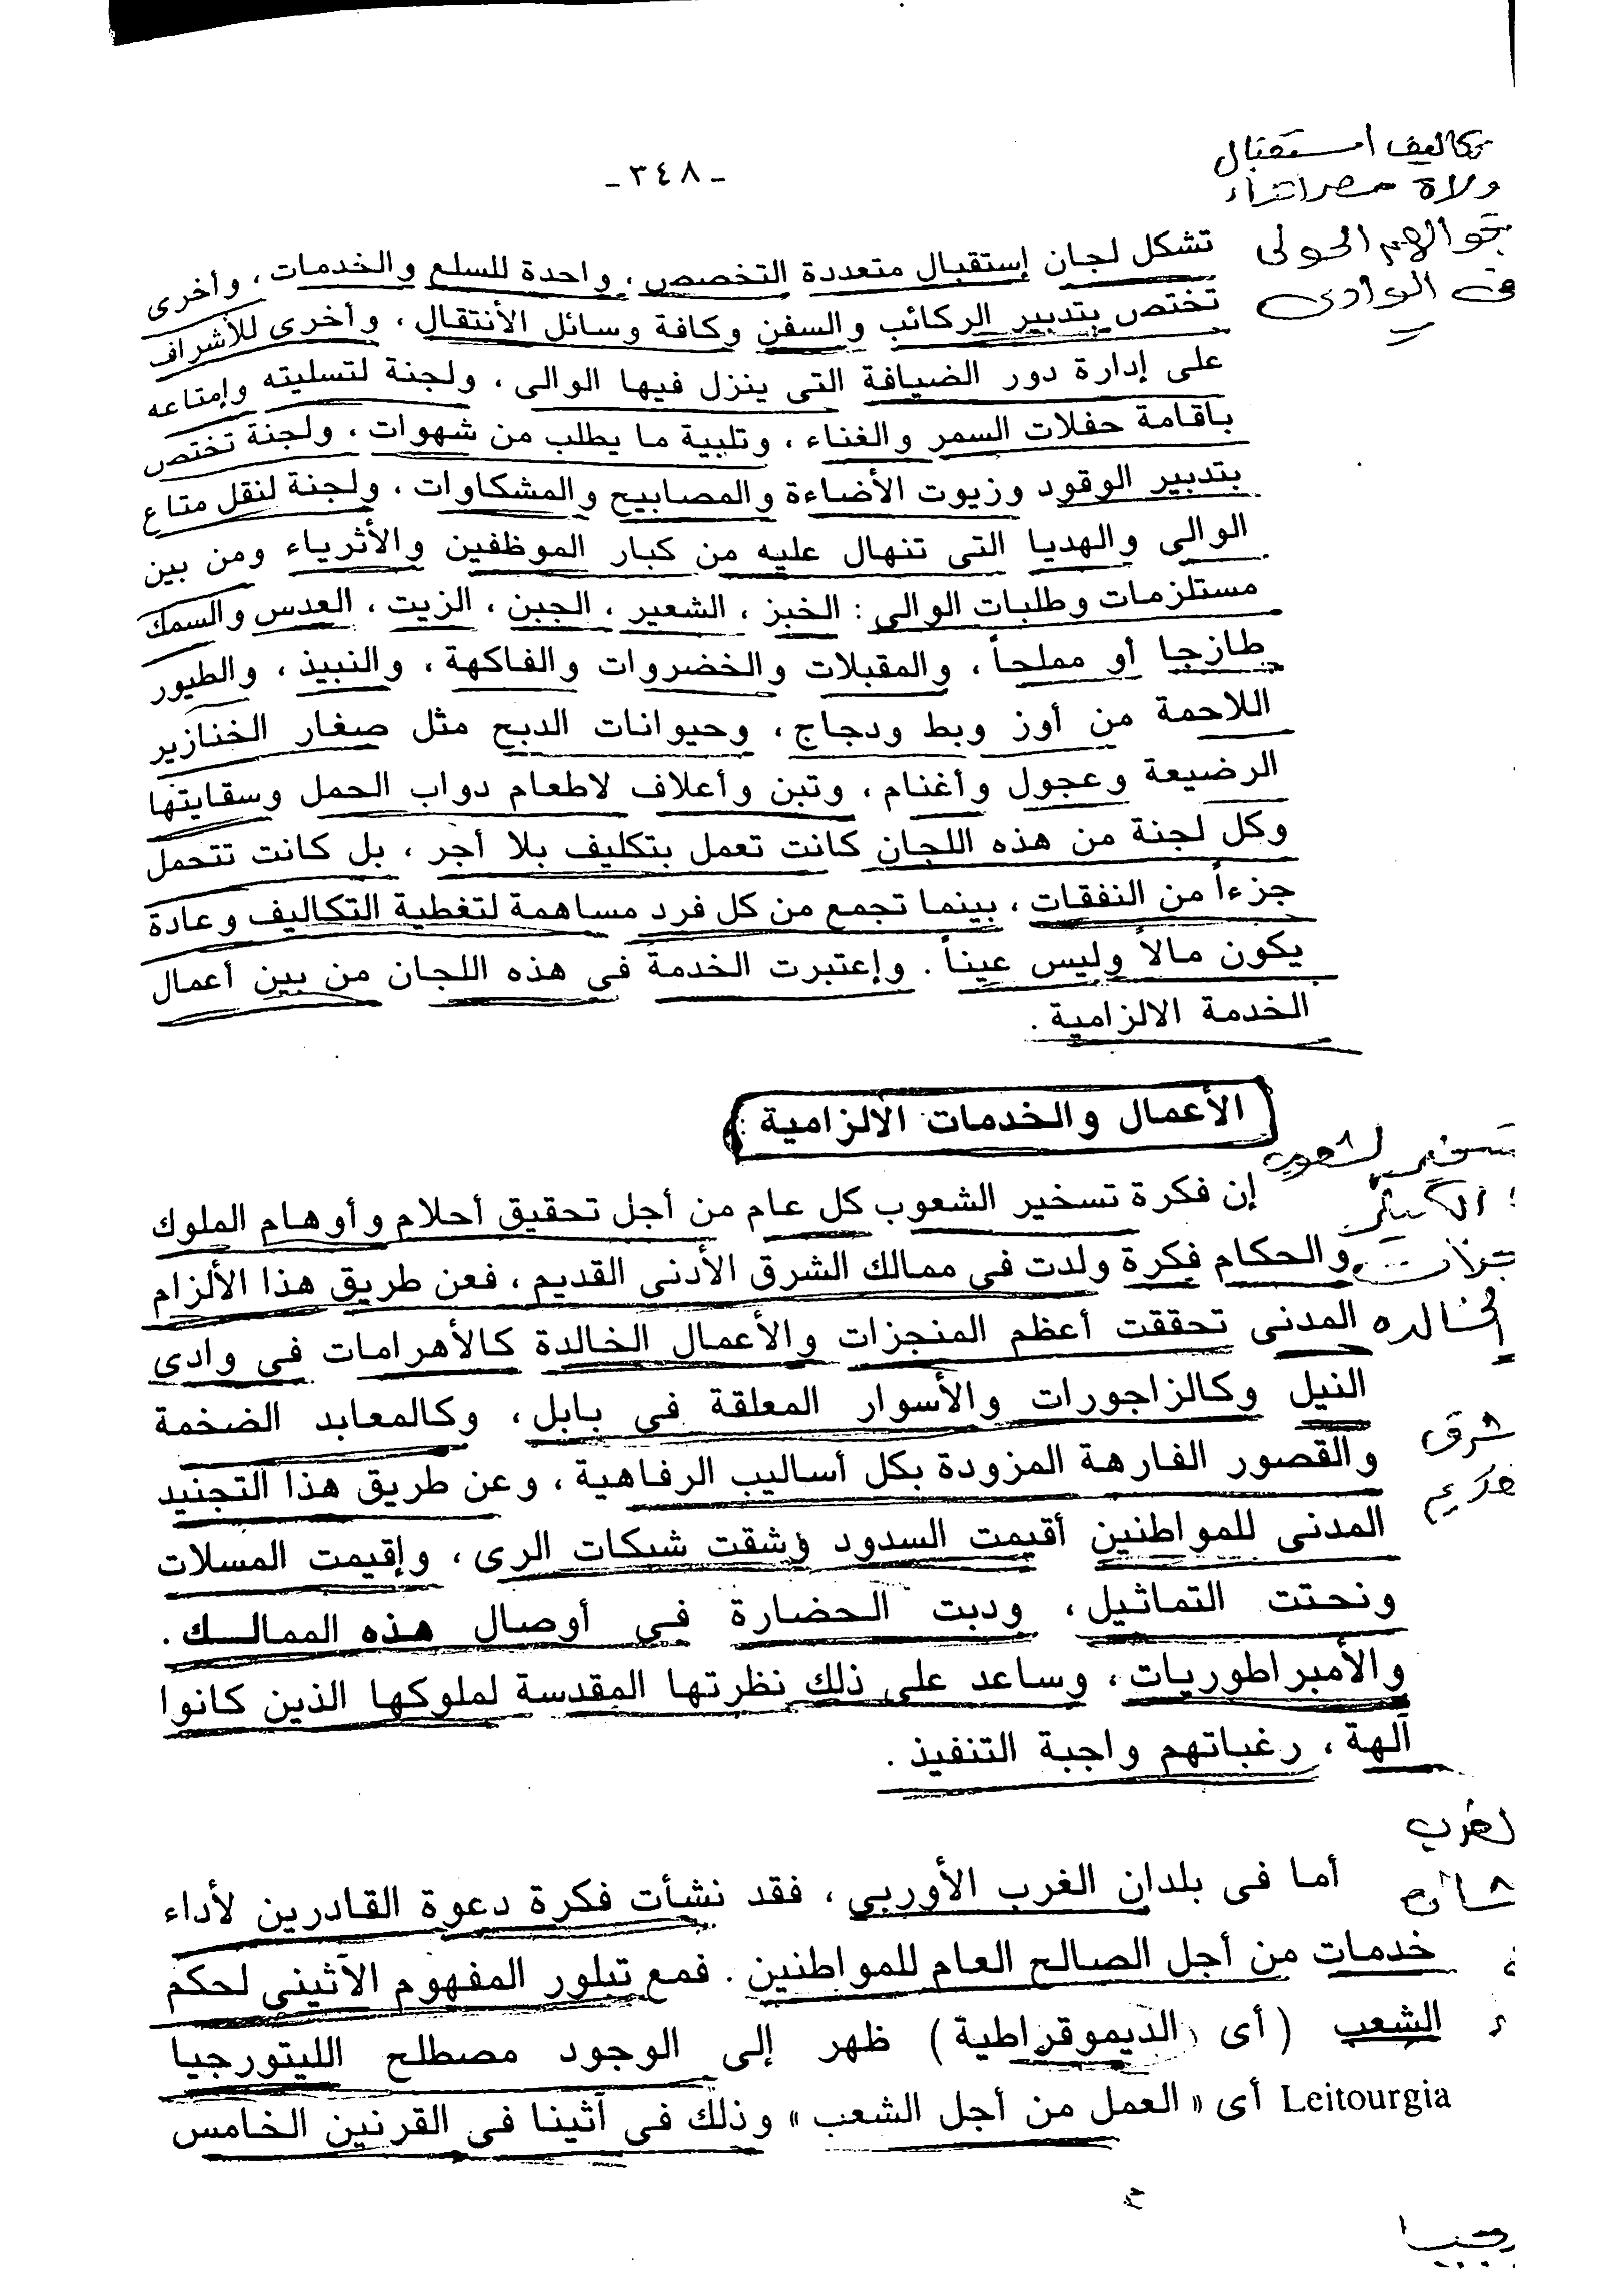 تكاليف استقبال
ولاة مصر اثناء
تجوالهم الحولى
فى الوادى
ـ ٣٤٨ ـ
تشكل لجان إستقبال متعددة التخصص ، واحدة للسلع والخدمات ، وأخرى
تختص بتدبير الركائب والسفن وكافة وسائل الأنتقال ، وأخرى للأشراف
على إدارة دور الضيافة التى ينزل فيها الوالى ، ولجنة لتسليته وإمتاعه
باقامة حفلات السمر والغناء ، وتلبية ما يطلب من شهوات ، ولجنة تختص
بتدبير الوقود وزيوت الأضاءة والمصابيح والمشكاوات ، ولجنة لنقل متاع
الوالى والهديا التى تنهال عليه من كبار الموظفين والأثرياء ومن بين
مستلزمات وطلبات الوالى : الخبز ، الشعير ، الجبن ، الزيت ، العدس والسمك
طازجا أو مملحاً ، والمقبلات والخضروات والفاكهة ، والنبيذ ، والطيور
اللاحمة من أوز وبط ودجاج ، وحيوانات الدبح مثل صغار الخنازير
الرضيعة وعجول وأغنام ، وتبن وأعلاف لاطعام دواب الحمل وسقايتها
وكل لجنة من هذه اللجان كانت تعمل بتكليف بلا أجر ، بل كانت تتحمل
جزءاً من النفقات ، بينما تجمع من كل فرد مساهمة لتغطية التكاليف وعادة
يكون مالاً وليس عيناً . وإعتبرت الخدمة فى هذه اللجان من بين أعمال
الخدمة الالزامية .
الأعمال والخدمات الالزامية :
تسخير الشعوب
إن فكرة تسخير الشعوب كل عام من أجل تحقيق أحلام وأوهام الملوك
والحكام فكرة ولدت فى ممالك الشرق الأدنى القديم ، فعن طريق هذا الألزام
الخالده
المدنى تحققت أعظم المنجزات والأعمال الخالدة كالأهرامات فى وادى
النيل وكالزاجورات والأسوار المعلقة فى بابل ، وكالمعابد الضخمة
شرق
والقصور الفارهة المزودة بكل أساليب الرفاهية ، وعن طريق هذا التجنيد
المدنى للمواطنين أقيمت السدود وشقت شبكات الرى ، وإقيمت المسلات
ونحتت التماثيل ، ودبت الحضارة فى أوصال هذه الممالك .
والأمبراطوريات ، وساعد على ذلك نظرتها المقدسة لملوكها الذين كانوا
آلهة ، رغباتهم واجبة التنفيذ .
لغرب
أما فى بلدان الغرب الأوربى ، فقد نشأت فكرة دعوة القادرين لأداء
خدمات من أجل الصالح العام للمواطنين . فمع تبلور المفهوم الآثينى لحكم
الشعب (أى الديموقراطية) ظهر إلى الوجود مصطلح الليتورجيا
Leitourgia أى « العمل من أجل الشعب » وذلك فى آثينا فى القرنين الخامس